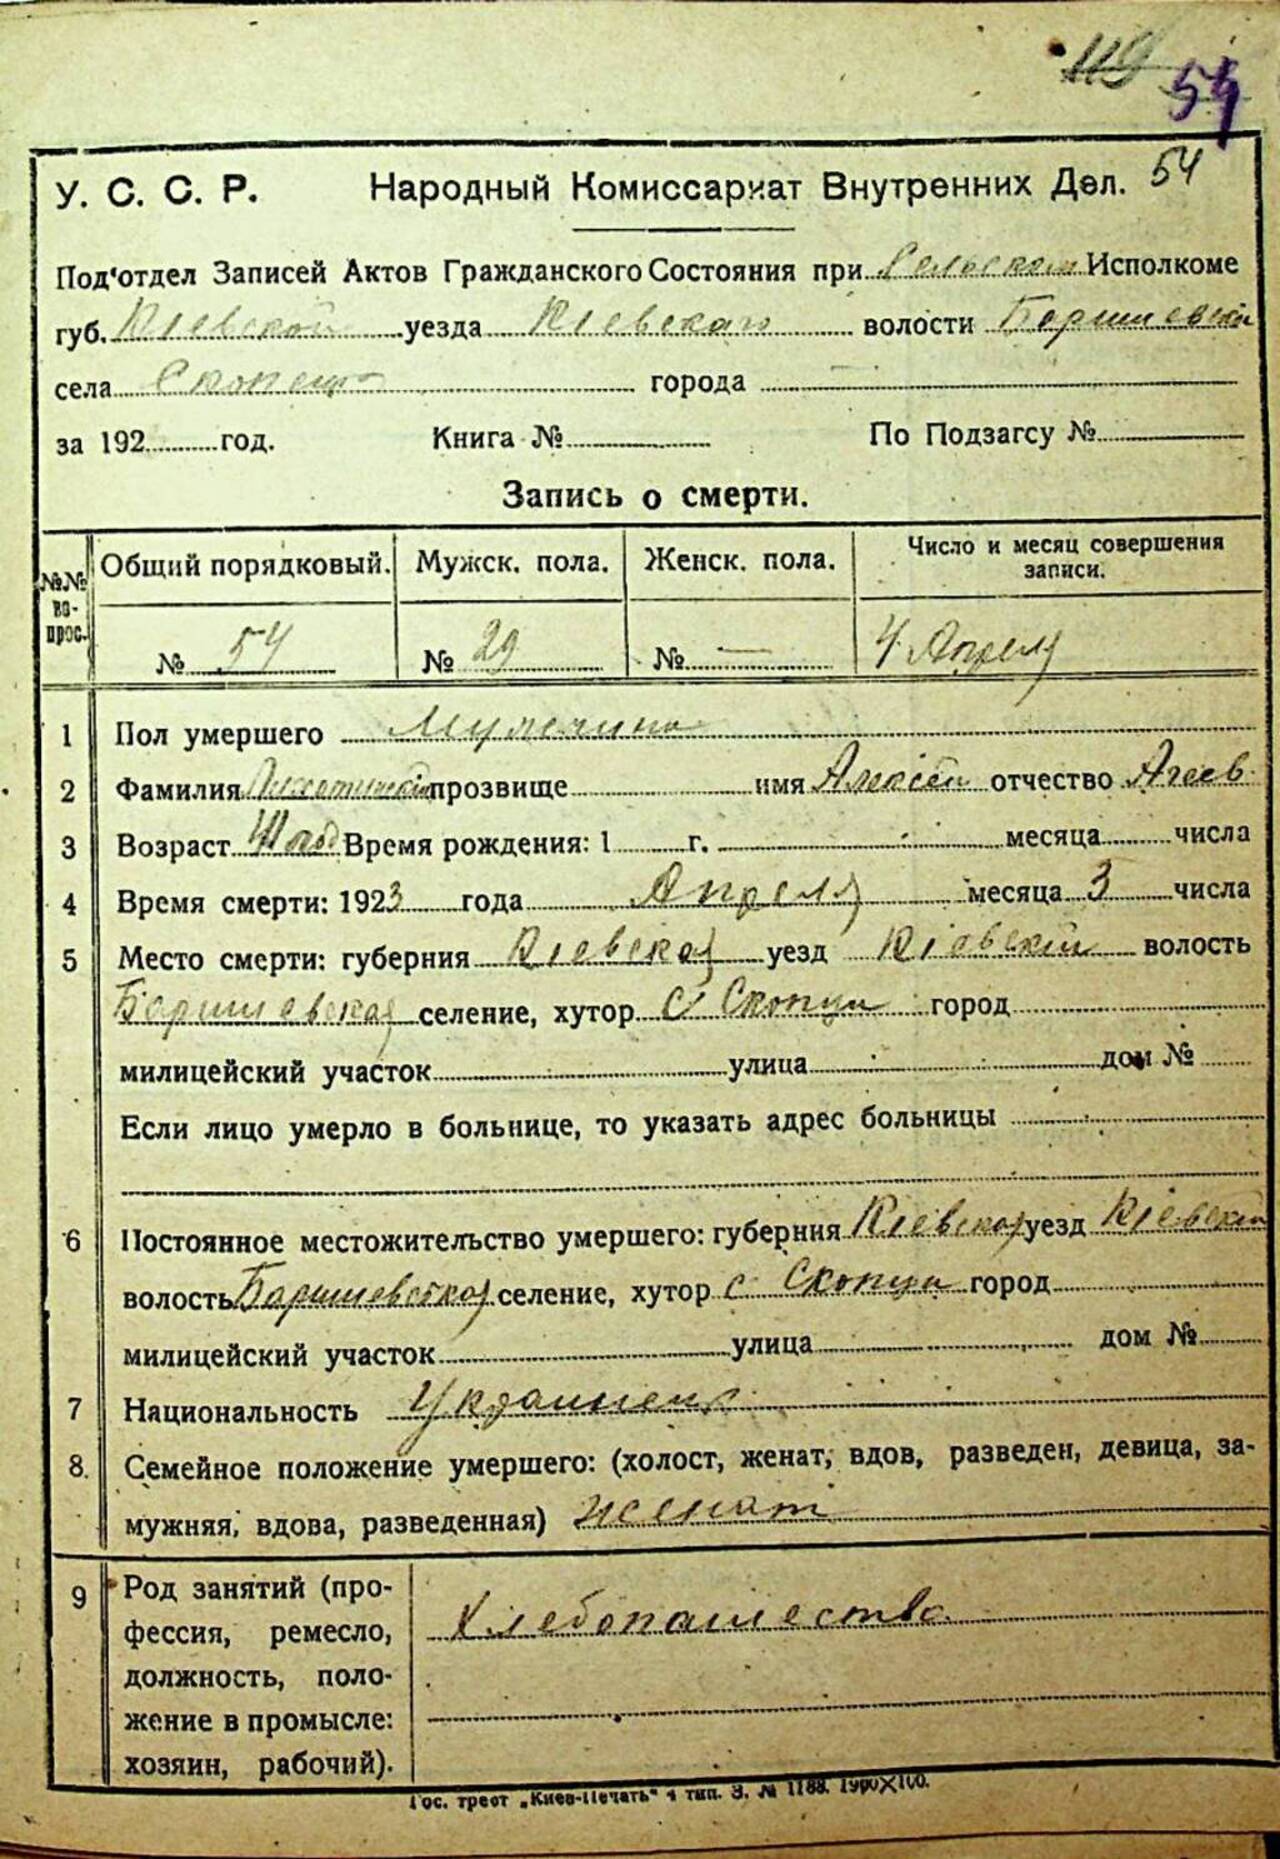 119 54
У. С. С. Р. Народный Комиссариат Внутренних Дел. 54
Под'отдел Записей Актов Гражданского Состояния при Сельском Исполкоме
губ. Кіевской уезда Кіевскаго волости Баришевской
села города —
за 192 год. Книга № По Подзагсу №
Запись о смерти.
№№ вопрос. Общий порядковый. Мужск. пола. Женск. пола. Число и месяц совершения записи.
№ 54 № 29 № — 4 Апреля
1 Пол умершего Мужчина
2 Фамилия прозвище имя Алексей отчество Агеев
3 Возраст Время рождения: 1 г. месяца числа
4 Время смерти: 1923 года Апреля месяца 3 числа
5 Место смерти: губерния Кіевская уезд Кіевскій волость
Баришевская селение, хутор с Скопци город
милицейский участок улица дом №
Если лицо умерло в больнице, то указать адрес больницы
6 Постоянное местожительство умершего: губерния Кіевская уезд Кіевскій
волость Баришевская селение, хутор с Скопци город
милицейский участок улица дом №
7 Национальность Украинец
8. Семейное положение умершего: (холост, женат, вдов, разведен, девица, за-
мужняя, вдова, разведенная) женат
9 Род занятий (про-
фессия, ремесло, Хлебопашество
должность, поло-
жение в промысле:
хозяин, рабочий).
Гос. трест „Киев-Печать" 4 тип. З. № 1188. 1900×100.